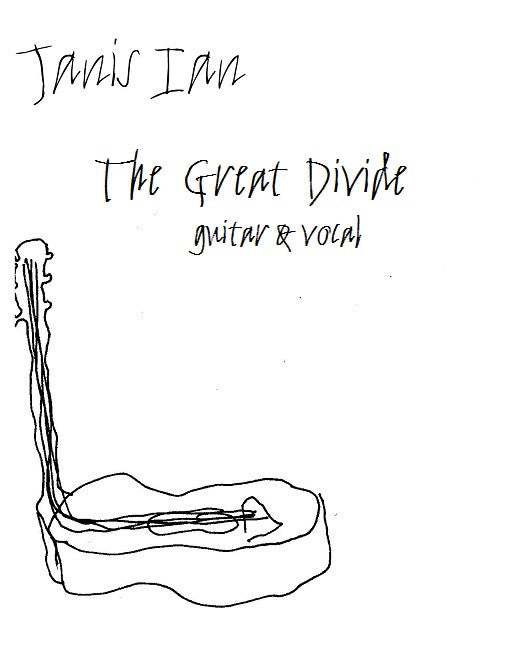 Janis Ian
The Great Divide
guitar & vocal